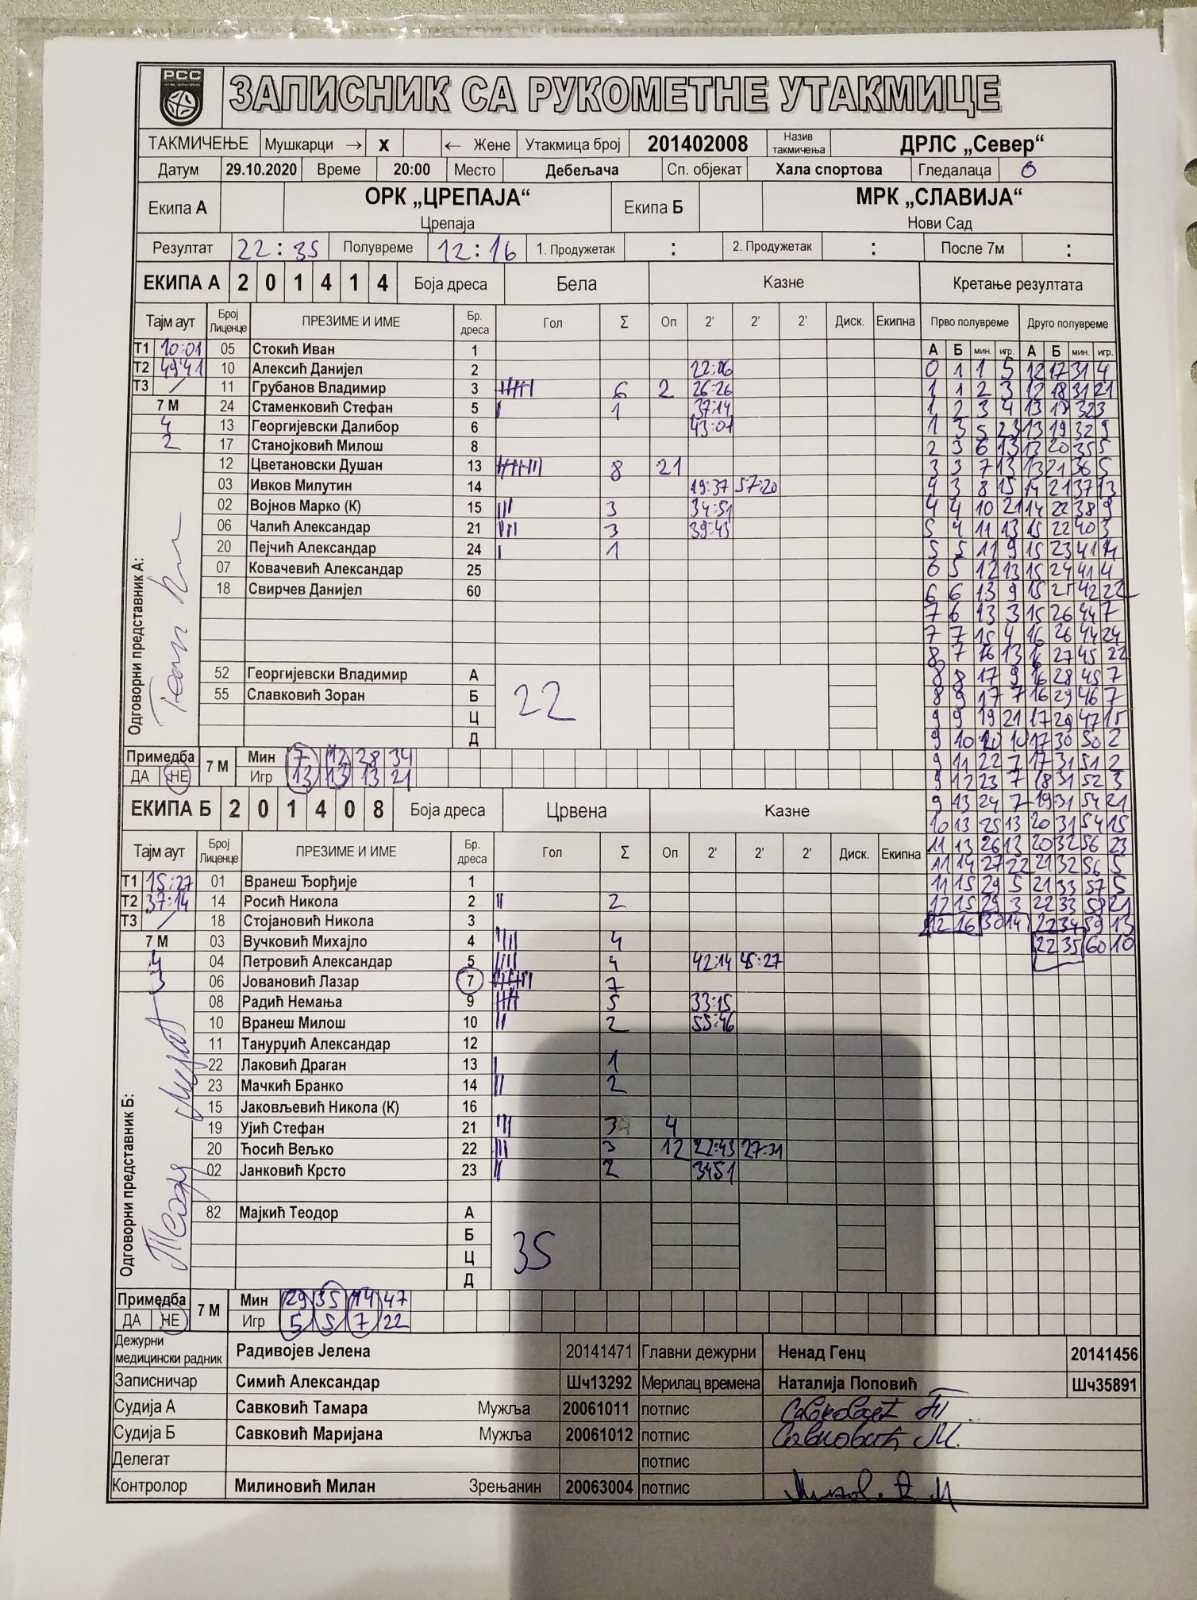 РСС
ЗАПИСНИК СА РУКОМЕТНЕ УТАКМИЦЕ
ТАКМИЧЕЊЕ Мушкарци → x ← Жене Утакмица број 201402008 Назив такмичења ДРЛС „Север“
Датум 29.10.2020 Време 20:00 Место Дебељача Сп. објекат Хала спортова Гледалаца 0
Екипа А ОРК „ЦРЕПАЈА“ Црепаја Екипа Б МРК „СЛАВИЈА“ Нови Сад
Резултат 22:35 Полувреме 12:16 1. Продужетак : 2. Продужетак : После 7м :
ЕКИПА А 2 0 1 4 1 4 Боја дреса Бела Казне Кретање резултата
Тајм аут Број Лиценце ПРЕЗИМЕ И ИМЕ Бр. дреса Гол Σ Оп 2' 2' 2' Диск. Екипна Прво полувреме Друго полувреме
А Б мин. игр. А Б мин. игр.
Т1 10:01 05 Стокић Иван 1
Т2 49:41 10 Алексић Данијел 2 22:06
Т3 / 11 Грубанов Владимир 3 6 2 26:26
7 М 24 Стаменковић Стефан 5 1 37:14
4 13 Георгијевски Далибор 6 43:01
2 17 Станојковић Милош 8
12 Цветановски Душан 13 8 21
03 Ивков Милутин 14 19:37 57:20
02 Војнов Марко (К) 15 3 34:51
06 Чалић Александар 21 3 39:43
20 Пејчић Александар 24 1
07 Ковачевић Александар 25
18 Свирчев Данијел 60
Одговорни представник А:
52 Георгијевски Владимир А
55 Славковић Зоран Б
22
Ц
Д
Примедба ДА НЕ 7 М Мин 7 12 28 34
Игр 13 13 13 21
ЕКИПА Б 2 0 1 4 0 8 Боја дреса Црвена Казне
Тајм аут Број Лиценце ПРЕЗИМЕ И ИМЕ Бр. дреса Гол Σ Оп 2' 2' 2' Диск. Екипна
Т1 15:27 01 Вранеш Ђорђије 1
Т2 37:14 14 Росић Никола 2 2
Т3 / 18 Стојановић Никола 3
7 М 03 Вучковић Михајло 4 4
4 04 Петровић Александар 5 4 42:14 45:27
3 06 Јовановић Лазар 7 7
08 Радић Немања 9 5 33:15
10 Вранеш Милош 10 2 55:46
11 Танурџић Александар 12
22 Лаковић Драган 13 1
23 Мачкић Бранко 14 2
15 Јаковљевић Никола (К) 16
19 Ујић Стефан 21 3 4
20 Ћосић Вељко 22 3 12 22:43 27:31
02 Јанковић Крсто 23 2 3451
Одговорни представник Б:
82 Мајкић Теодор А
Б
35
Ц
Д
Примедба ДА НЕ 7 М Мин 29 35 14 47
Игр 5 5 7 22
0 1 1 5 12 17 31 4
1 1 2 3 12 18 31 21
1 2 3 4 13 18 32 3
1 3 5 23 13 19 32 9
2 3 6 13 13 20 35 5
3 3 7 13 13 21 36 5
4 3 8 15 14 21 37 13
4 4 10 21 14 22 38 9
5 4 11 13 15 22 40 3
5 5 11 9 15 23 41 4
6 5 12 13 15 24 41 4
6 6 13 9 15 25 42 22
7 6 13 3 15 26 44 7
7 7 15 4 16 26 44 24
8 7 16 13 16 27 45 22
8 8 17 9 16 28 45 7
8 9 17 7 16 29 46 7
9 9 19 21 17 29 47 15
9 10 20 10 17 30 50 2
9 11 22 7 17 31 51 2
9 12 23 7 18 31 52 3
9 13 24 7 19 31 54 21
10 13 25 13 20 31 54 15
11 13 26 13 20 32 56 23
11 14 27 22 21 32 56 5
11 15 29 5 21 33 57 5
12 15 29 3 22 33 58 21
12 16 30 14 22 34 59 13
22 35 60 10
Дежурни медицински радник Радивојев Јелена 20141471 Главни дежурни Ненад Генц 20141456
Записничар Симић Александар Шч13292 Мерилац времена Наталија Поповић Шч35891
Судија А Савковић Тамара Мужља 20061011 потпис Савковић Т.
Судија Б Савковић Маријана Мужља 20061012 потпис Савковић М.
Делегат потпис
Контролор Милиновић Милан Зрењанин 20063004 потпис